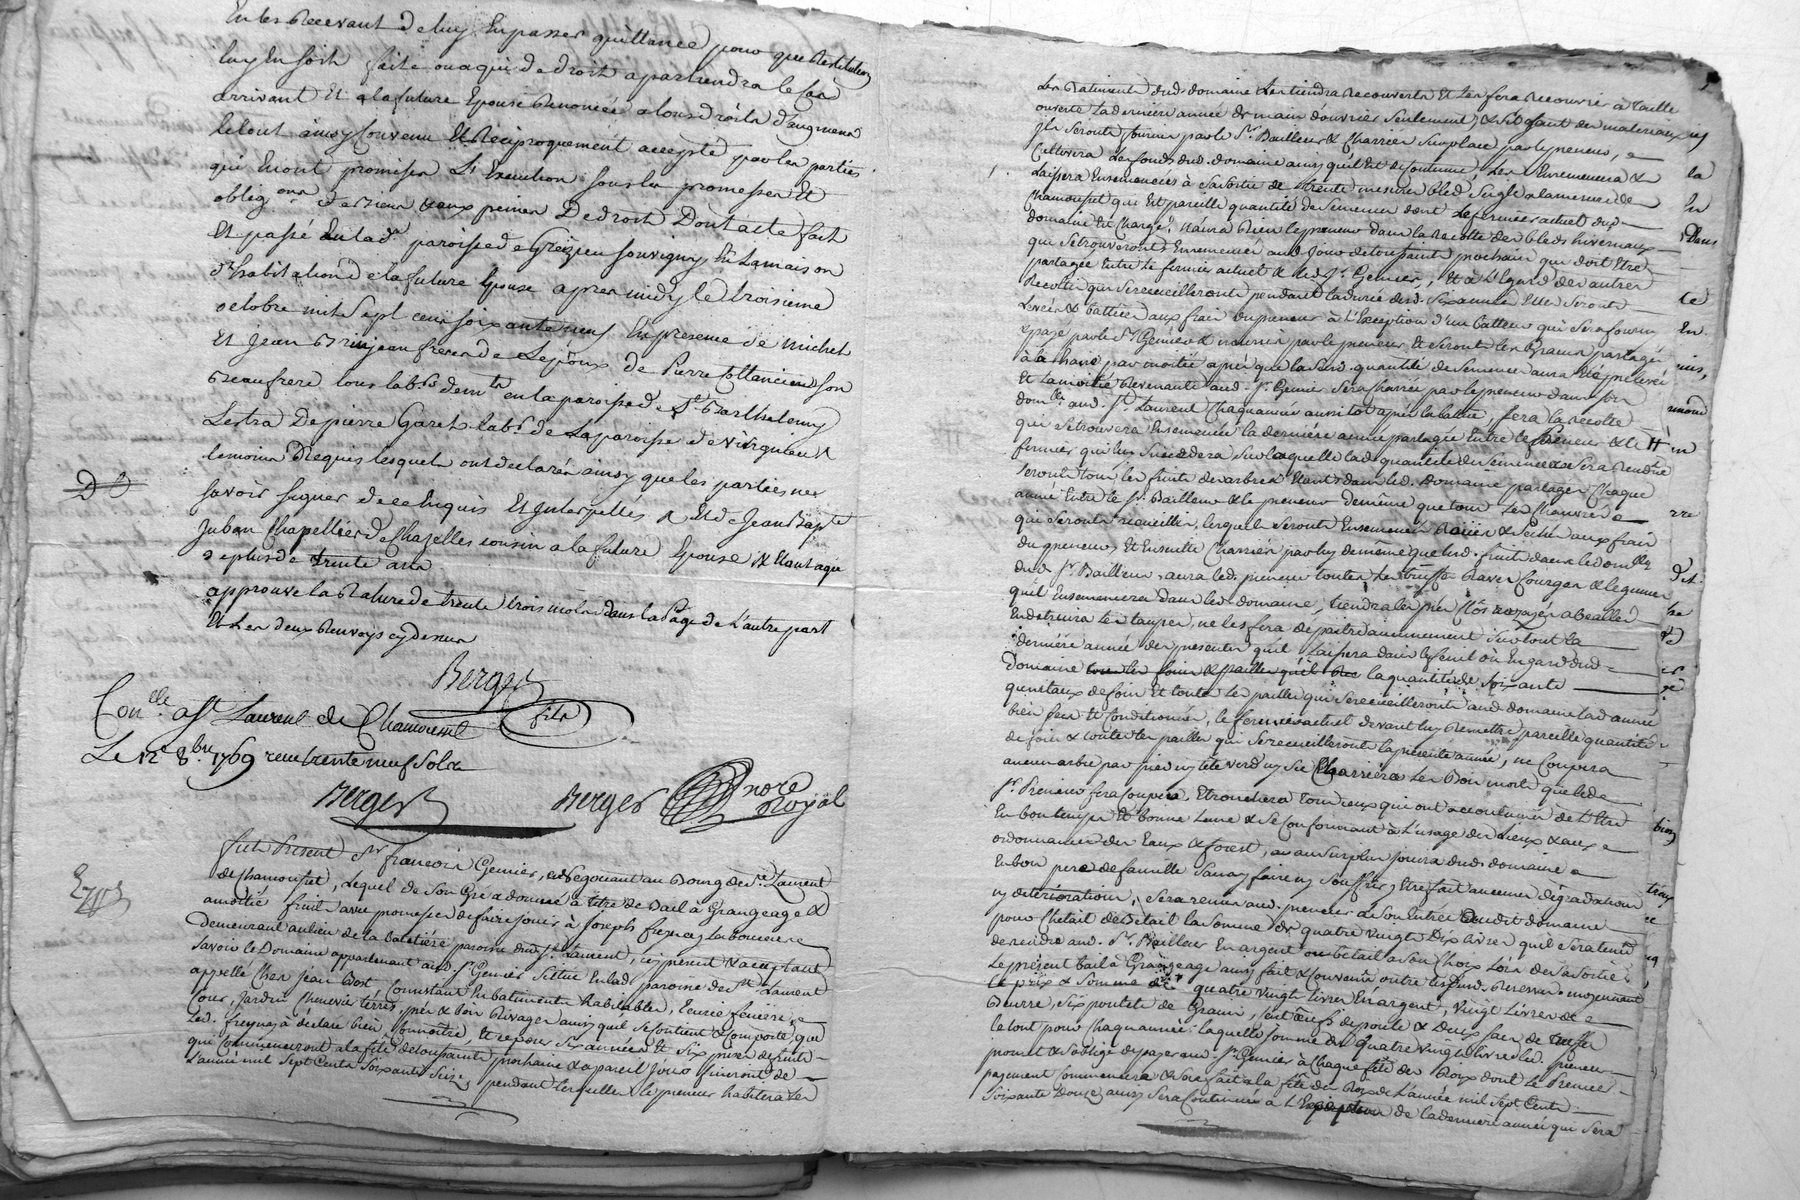 En les Recevant de luy En passer quittance pour que Restitution
luy En soit faite ou a qui de droit apartiendra le Cas
arrivant Et a la future Epouse Renoncée a tous droits d'augment
le tout ainsy Convenu Et Reciproquement accepté par les parties
qui En ont promis L'Execution sous les promesses Et
oblig.ons de biens &aux peines De droit Dont acte fait
Et passé En lad. paroisse de Grezieu Souvigny En La maison
d'habitation de la future Epouse apres midy le troisieme
octobre mil Sept cens soixante neuf En presence de Michel
Et Jean frere de Lepoux de Pierre son
Beaufrere tous lab.rs dem.ts en la paroisse de St Barthelemy
Lestra De pierre Garet lab.r de La paroisse de Virignieu
temoins Requis lesquels ont declarés ainsy que les parties ne
savoir signer de ce Enquis Et Interpellés & De Jean Bap.te
Juban Chapellier de Chazelles cousin a la future Epouse &
de plus de trente ans
approuvé la Rature de trente trois mots dans la Page de L'autre part
Et Les deux Renvoys cy dessus
Berger
fils
Con.lle a St Laurent de Chamousset
Le 12e 8.bre 1769 reçu trente neuf Sols
Berger
Berger nore Royal
fut Present Sr francois Gemier, Negotiant au Bourg de St Laurent
de Chamousset, Lequel de Son Gré a donné a titre de Bail à Grangeage &
amoitié fruit avec promesse de faire Jouir à Joseph
demeurant au lieu de la paroisse dud. St Laurent, icy présent & acceptant
Savoir le Domaine appartenant aud. Sr Gemier Scitué En lad. paroisse de St Laurent
appellé Chez Jean Bost, Consistant En batiments habitable, Ecurie feniere,
Cour, Jardin Chenevier terres, prés & Bois Rivages ainsy quil Se Contient & Comporte, que
Led. à déclaré bien Connoitre, Et ce pour Six années Et Six prises de fruits
qui Commenceront a la fête de toussaints prochaine & a pareil Jour finiront de
L'année mil Sept Cents Soixante Seize, pendant lesquelles le preneur habitera Les
Les Batiments dud. domaine Les tiendra Recouverts Et Les fera Recouvrir à taille
ouverte La derniere année de main d'ouvrier Seulement, les materiaux
Seront fournis par le Sr Bailleur & Charriés Sur place par le preneur,
Cultivera Les fonds dud. domaine ainsy quil Est de Coutume, Les Ensemencera &
Laissera Ensemencées à Sa Sortie de trente mesures bled Seigle a la mesure de
Chamousset qui Est pareille quantité de Semence dont Le fermier actuel dud.
domaine Est Chargé, N'aura Rien le preneur dans la Recolte des bleds hivernaux
qui Se trouveront Ensemencés aud. Jour de toussaint prochain qui doit Etre
partagée Entre le fermier actuel & led. Sr Gemier, Et a L'Egard des autres
Recoltes qui Se recueilleront pendant la durée des d. Six années Elles Seront
Levées & battues aux frais du preneur à L'Exception d'un batteur qui Sera fourny
& payé par le Sr Gemier & nourri par le preneur & Seront les Grains partagés
par moitié après que la Susd. quantité de Semence aura été prelevée
Et La moitié Revenante aud. Sr Gemier Sera Charriée par le preneur dans Son
dom.lle aud. St Laurent Chaque année aussitot après la battue, fera la recolte
qui Se trouvera Ensemencée la derniere année partagée Entre le preneur & le
fermier qui luy Succedera Sur laquelle lad. quantité de Semence Sera Rendue
Seront tous les fruits des arbres Etants dans led. Domaine partagés Chaque
année Entre le Sr Bailleur & le preneur de même que tous Les Chanvres
qui Seront recueillis, lesquels Seront Ensemencés & Sechés aux frais
du preneur, Et Ensuitte Charriés par luy de même que lesd. fruits dans le domlle
dud. Sr Bailleur, aura led. preneur toutes Les truffes Raves Courges & legumes
qu'il Ensemencera dans led. domaine, tiendra les prés
En detruira les taupes, ne les fera depaitre aucunement Sur tout la
derniére année des presentes quil Laissera dans le fenil ou En gard dud.
domaine la quantité de Soixante
quintaux de foin Et toutes les pailles qui Se recueilleront aud. domaine lad. année
bien Secs & Conditionnés, le fermier actuel devant luy Remettre pareille quantité
de foin & toutes les pailles qui Se recueilleront la présente année, ne Coupera
aucun arbre par pied ny tete verd ny Sec Charriera Les Bois morts que led.
Sr fera Couper, Etronchera tous Ceux qui ont accoutumés de L'Etre
En bon temps Et bonne Lune & Se Conformant à L'usage des Lieux & aux
ordonnances des Eaux & forest, au Surplus Jouira dud. domaine
En bon pere de famille Sans y faire ny Souffrir Etre fait aucunes dégradations
ny deteriorations, Sera remis aud. preneur a Son Entrée audit domaine
pour Chetail de bétail la Somme de quatre vingt Dix livres quil Sera tenû
de rendre aud. Sr Bailleur En argent ou betail a Son Choix Lors de Sa Sortie
Le présent bail à Grangeage ainsy fait & Convenu outre les Susd. Reserves moyennant
Le prix & Somme de quatre vingt livres En argent, Vingt Livres de
Beurre, Six poulets de Grain, Cent œufs de poule & Deux Sacs de truffes
le tout pour Chaque année, laquelle Somme de quatre vingt livres led. preneur
promet & S'oblige de payer aud. Sr Gemier à Chaque fête des Roys dont le Premier
payement Commencera & Sera fait a la fête des Roys de L'année mil Sept Cents
Soixante Douze ainsy Sera Continué à L'Exception de la derniere année qui Sera